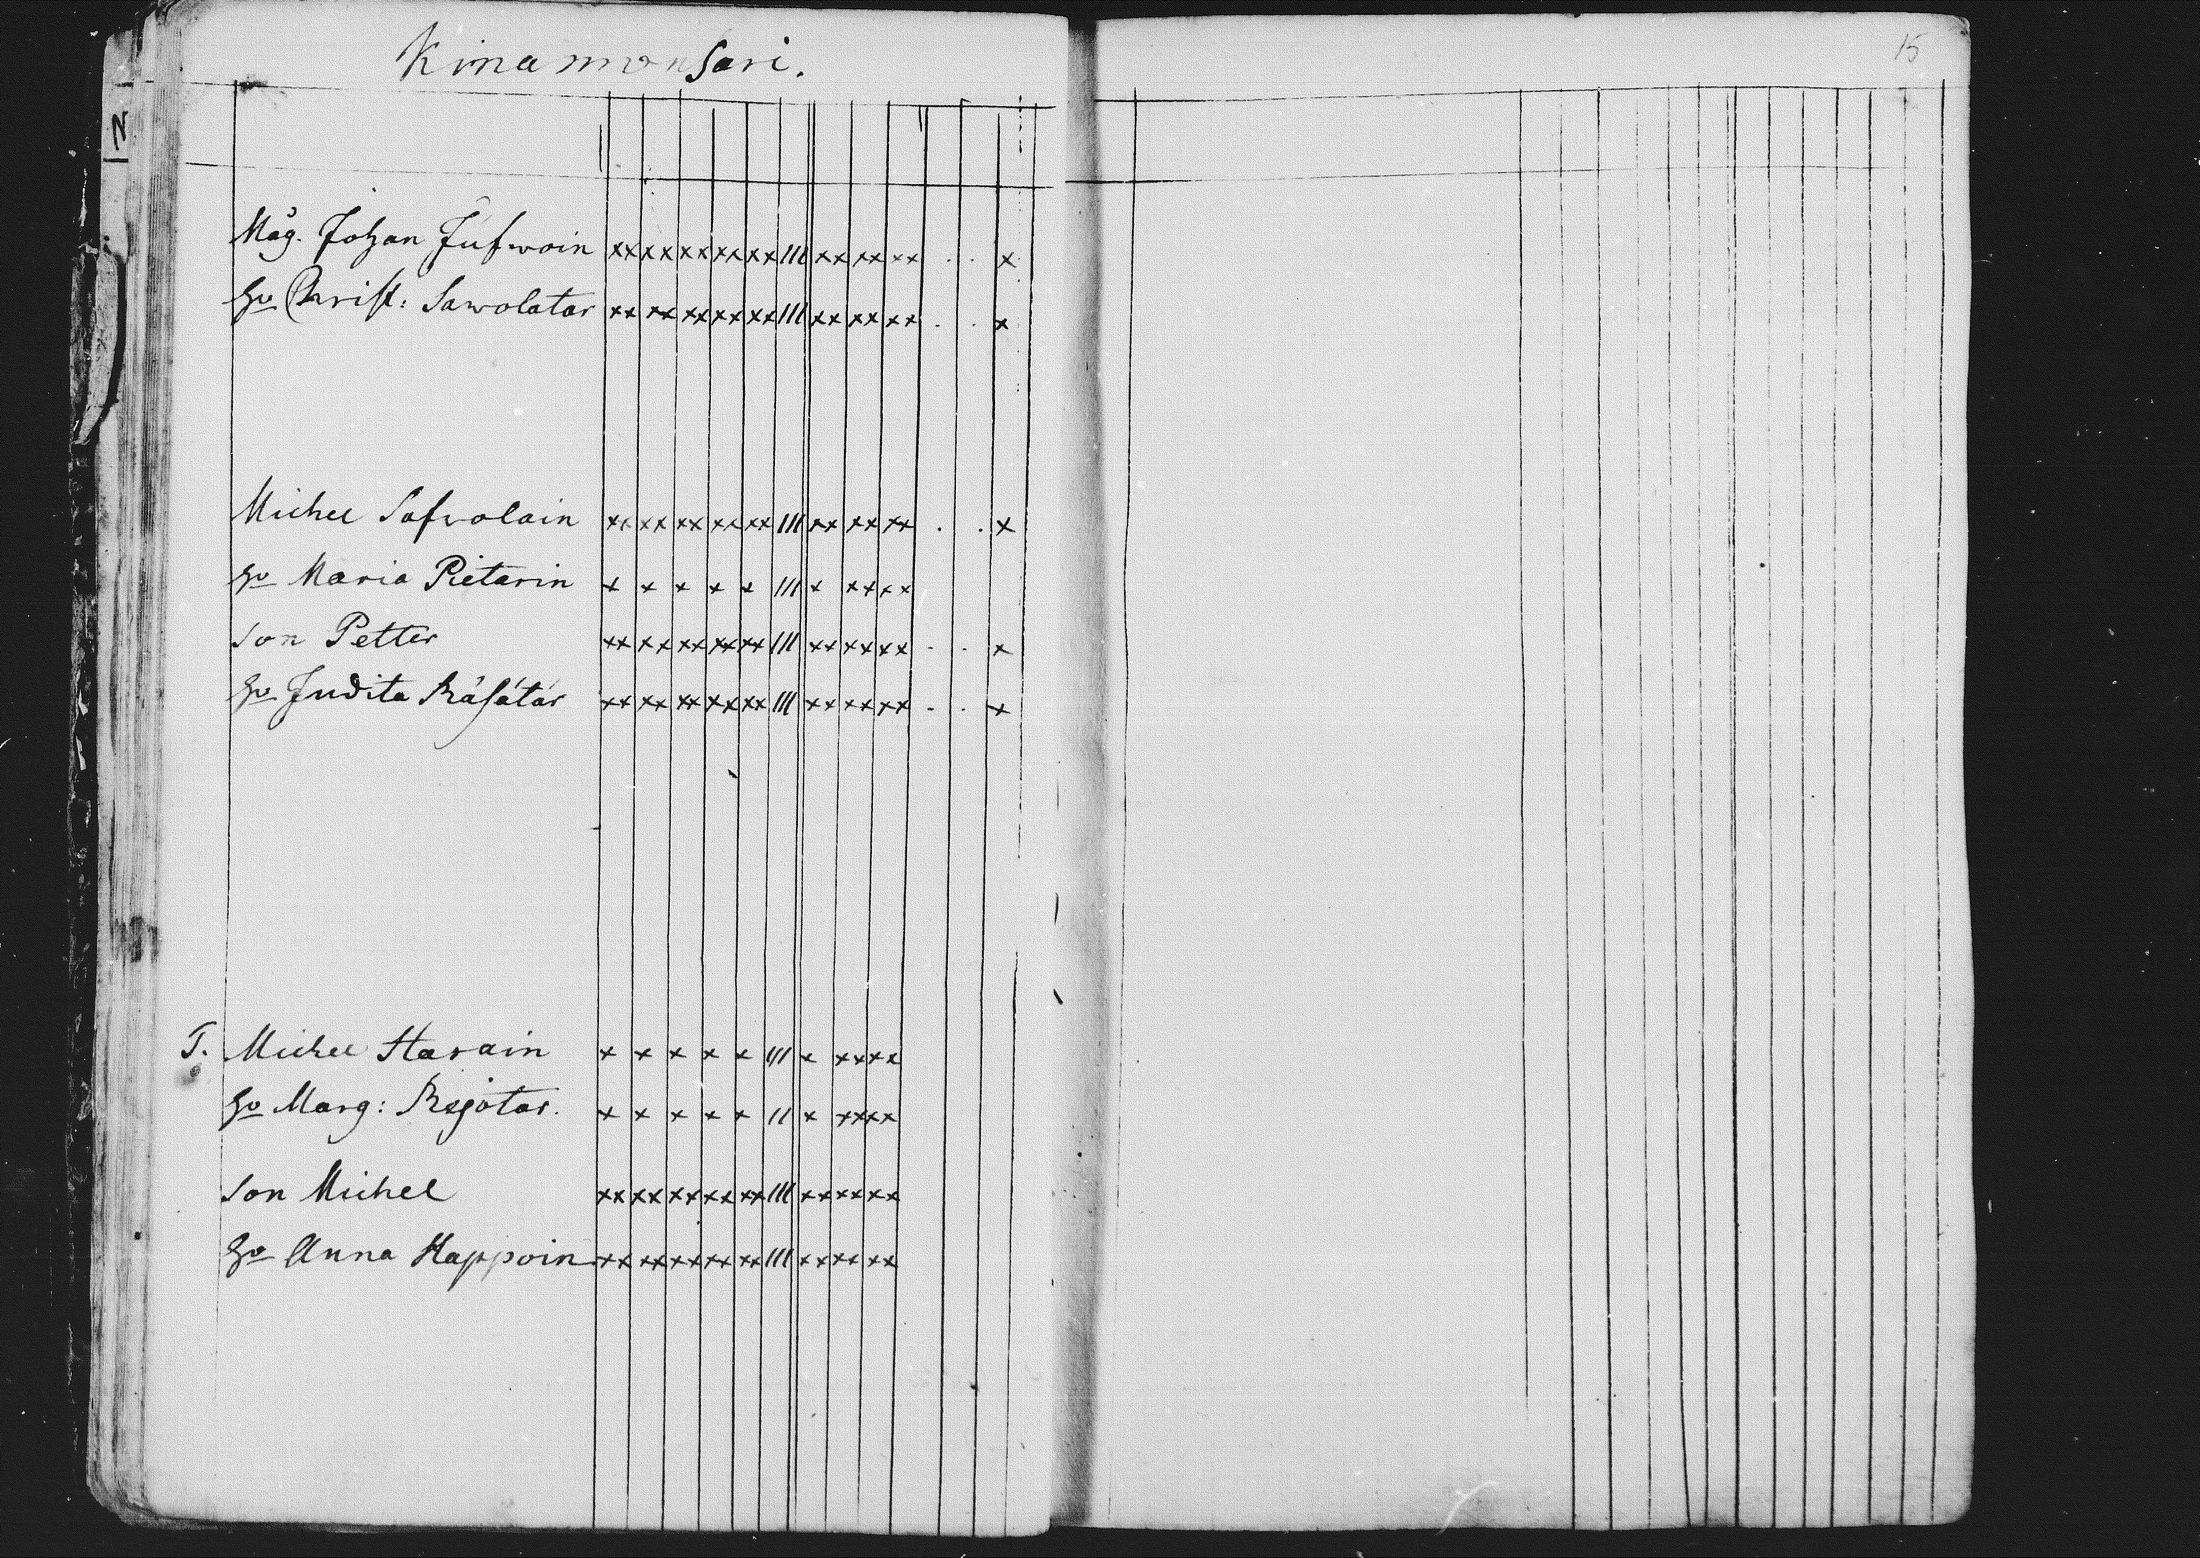 Kinamonsari.
15
N
Måg. Johan Jufwoin xx xx xx xx xx III xx xx xx . . x
Hu Christ: Sawolatar xx xx xx xx xx III xx xx xx . . x
Michel Safwolain xx xx xx xx xx III xx xx xx . . x
Hu Maria Pietarin x x x x x III x xx xx
Son Petter xx xx xx xx xx III xx xx xx . . x
Hu Judita Räsätär xx xx xx xx xx III xx xx xx . . x
T. Michel Harain x x x x x III x xx xx
Hu Marg: x x x x x II x xx xx
Son Michel xx xx xx xx xx III xx xx xx
Hu Anna Happoin xx xx xx xx xx III xx xx xx